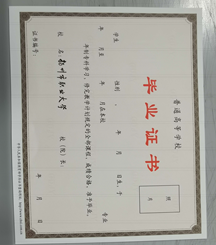 普通高等学校
毕业证书
照 片
学生 性别 , 年 月 日生,于
年 月至 年 月在本校 专业
年制专科学习,修完教学计划规定的全部课程,成绩合格,准予毕业。
校 名:扬州市职业大学 校(院)长:
证书编号: 年 月 日